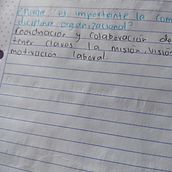 ¿Porque es importante la com
disciplina organizacional?
Coordinación y colaboración de
tener claves la misión, visión
motivación laboral.